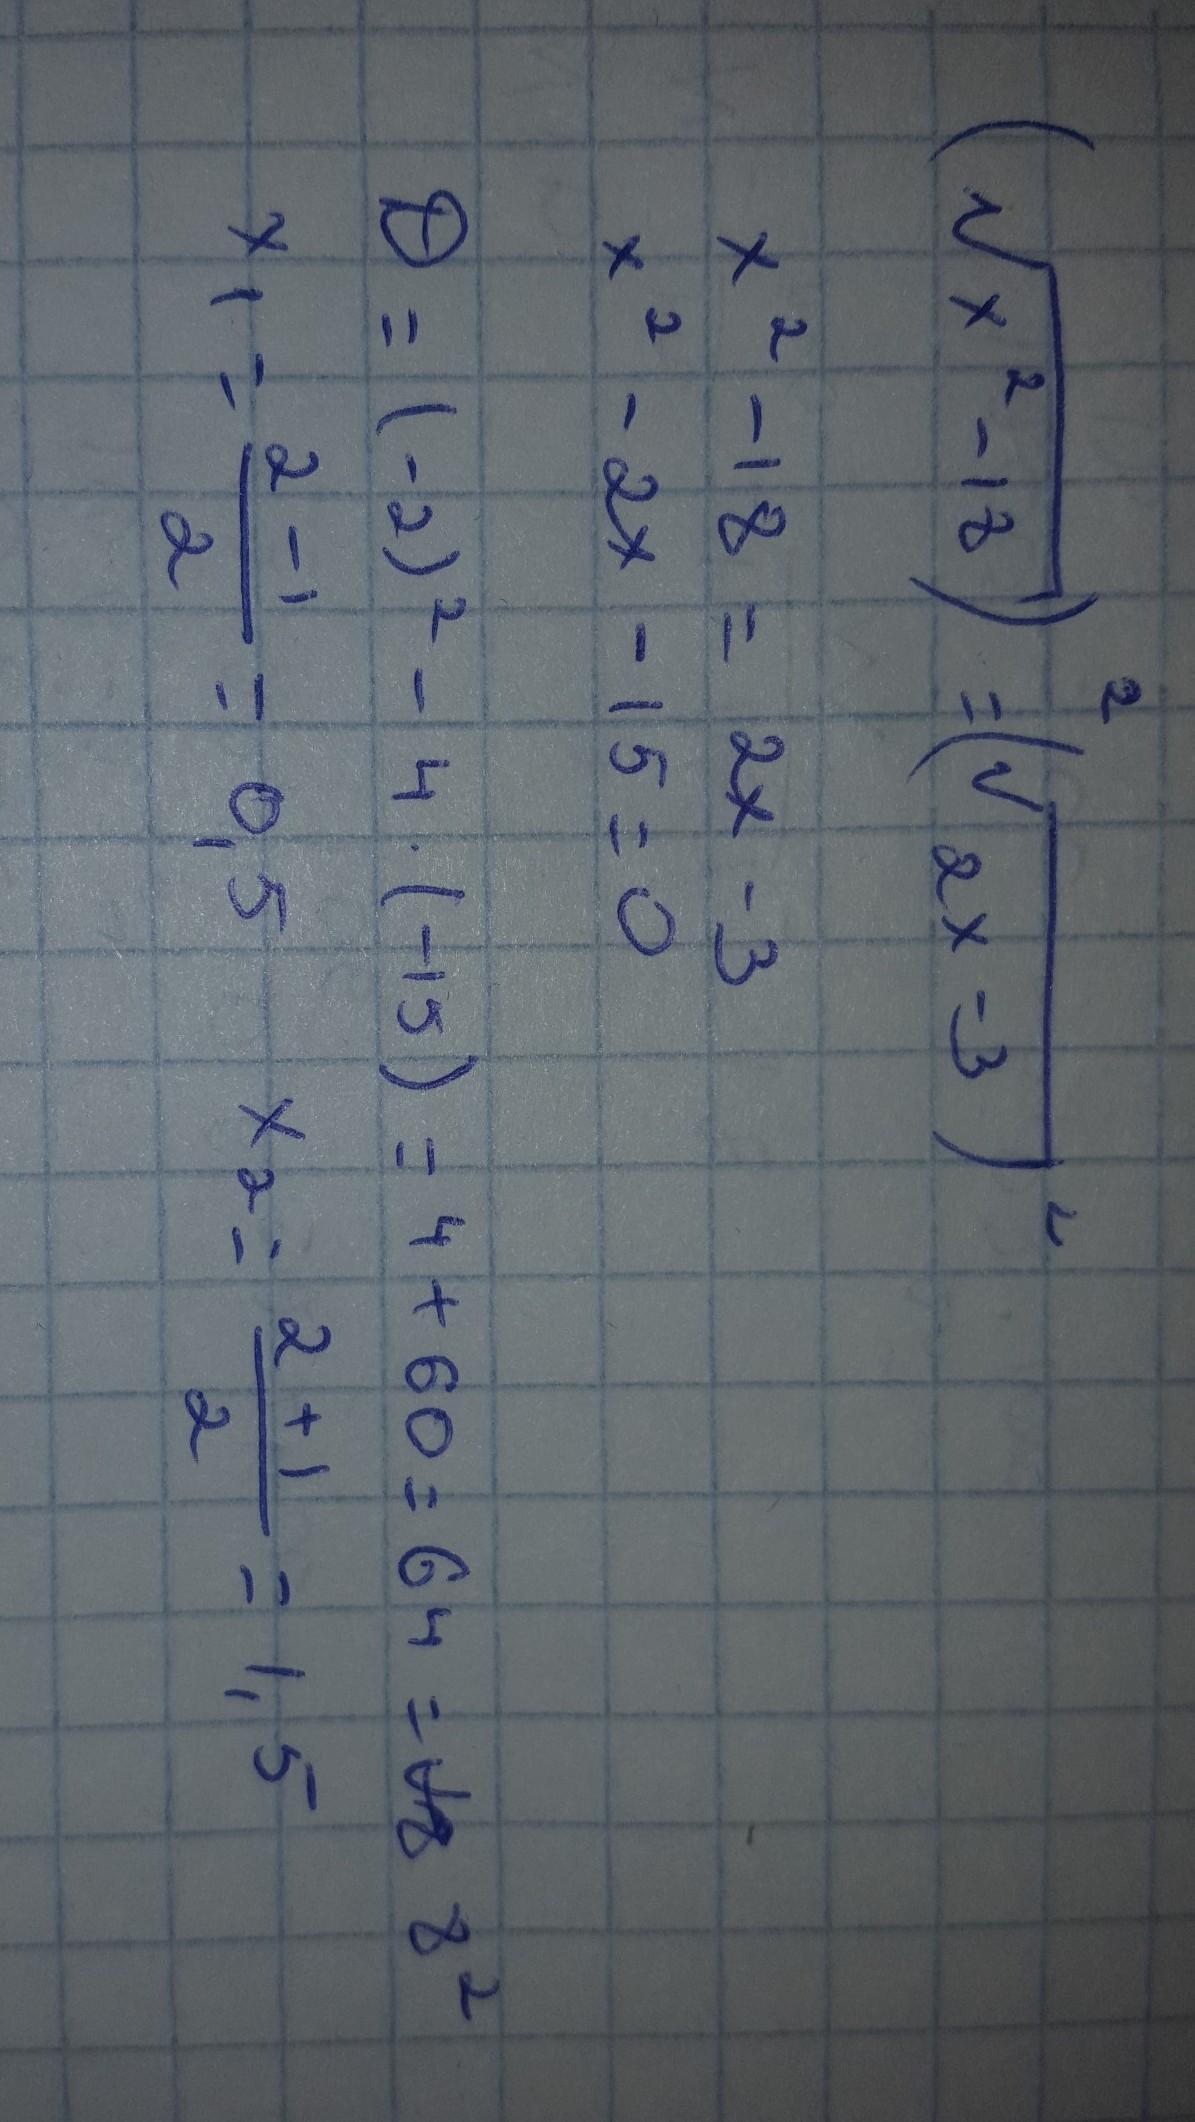 (√x²-18)² = (√2x-3)²
x² - 18 = 2x - 3
x² - 2x - 15 = 0
D = (-2)² - 4 · (-15) = 4 + 60 = 64 = 8²
x₁ = (2 - 1)/2 = 0,5 x₂ = (2 + 1)/2 = 1,5